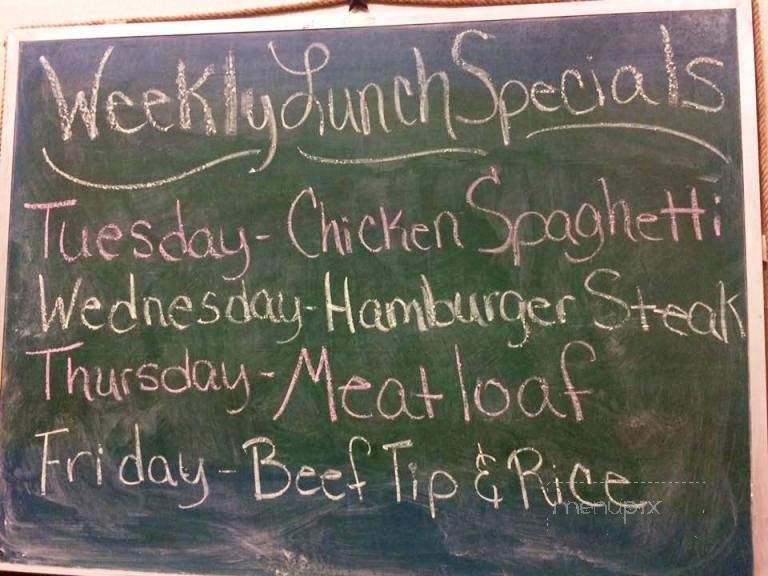 Weekly Lunch Specials
Tuesday - Chicken Spaghetti
Wednesday - Hamburger Steak
Thursday - Meatloaf
Friday - Beef Tip & Rice
menupix